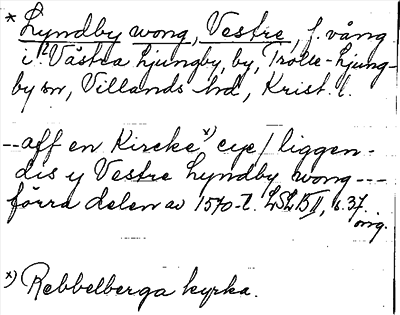 * Lyndby wong, Vestre, f. vång
i Västra Ljungby, by, Trolle-Ljung-
by sn, Villands hd, Krist. l.
--aff en Kircke x) eye / liggen-
dis y Vestre Lyndby wong ---
förra delen av 1570-t. LSLB II, s. 37.
orig.
x) Rebbelberga kyrka.